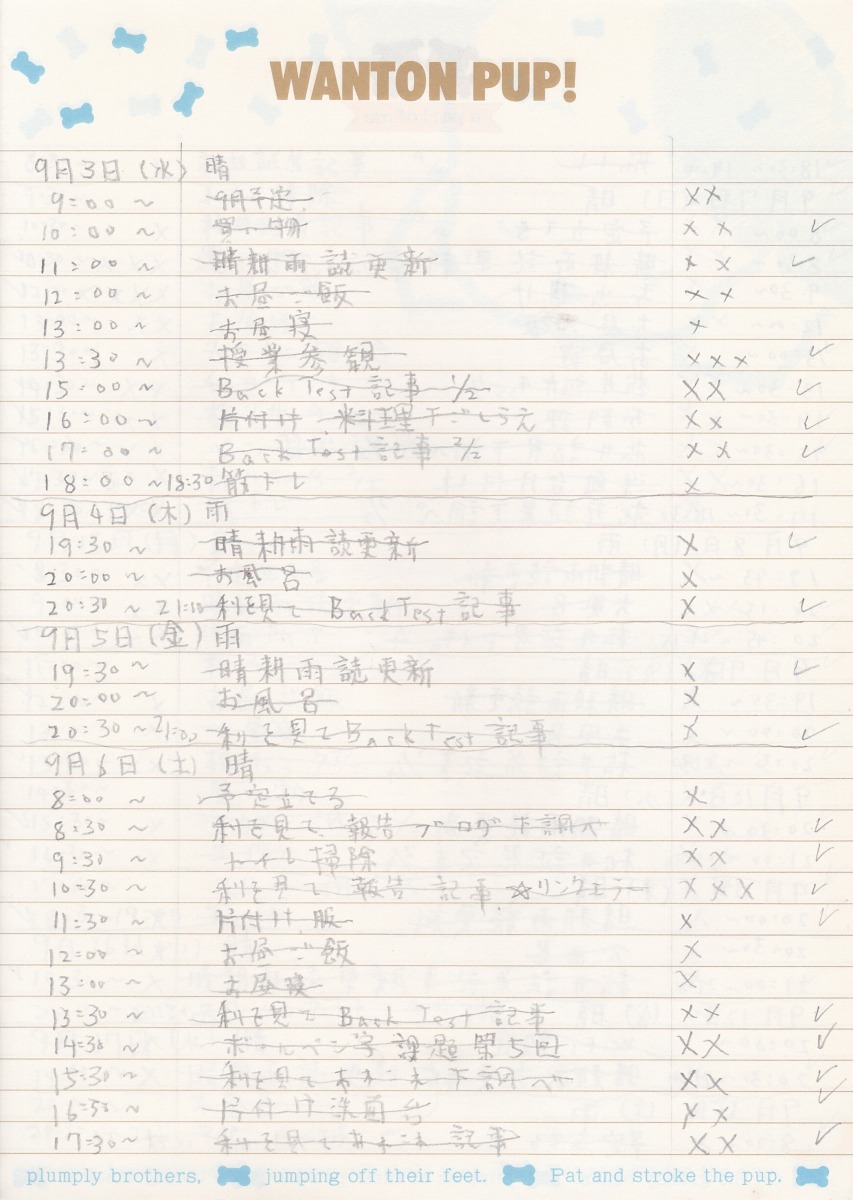 WANTON PUP!
9月3日(水) 晴
9:00 ~ 9月予定 XX
10:00 ~ 買い物 XX ✓
11:00 ~ 晴耕雨読更新 XX ✓
12:00 ~ お昼ご飯 XX
13:00 ~ お昼寝 X
13:30 ~ 授業参観 XXX ✓
15:00 ~ Back Test 記事 1/2 XX ✓
16:00 ~ 片付け 料理下ごしらえ XX ✓
17:00 ~ Back Test 記事 2/2 XX ✓
18:00 ~18:30 筋トレ X
9月4日(木) 雨
19:30 ~ 晴耕雨読更新 X ✓
20:00 ~ お風呂 X
20:30 ~ 21:10 利を見て Back Test 記事 X ✓
9月5日(金) 雨
19:30 ~ 晴耕雨読更新 X ✓
20:00 ~ お風呂 X
20:30 ~21:00 利を見て Back Test 記事 X ✓
9月6日(土) 晴
8:00 ~ 予定立てる X
8:30 ~ 利を見て 報告 ブログ下調べ XX ✓
9:30 ~ トイレ掃除 XX ✓
10:30 ~ 利を見て 報告 記事 ☆リンクエラー XXX ✓
11:30 ~ 片付け 服 X ✓
12:00 ~ お昼ご飯 X
13:00 ~ お昼寝 X
13:30 ~ 利を見て Back Test 記事 XX ✓
14:30 ~ ボールペン字 課題 第5回 XX ✓
15:30 ~ 利を見て 下調べ XX ✓
16:30 ~ 片付け 洗面台 XX ✓
17:30 ~ 利を見て 記事 XX ✓
plumply brothers, jumping off their feet. Pat and stroke the pup.